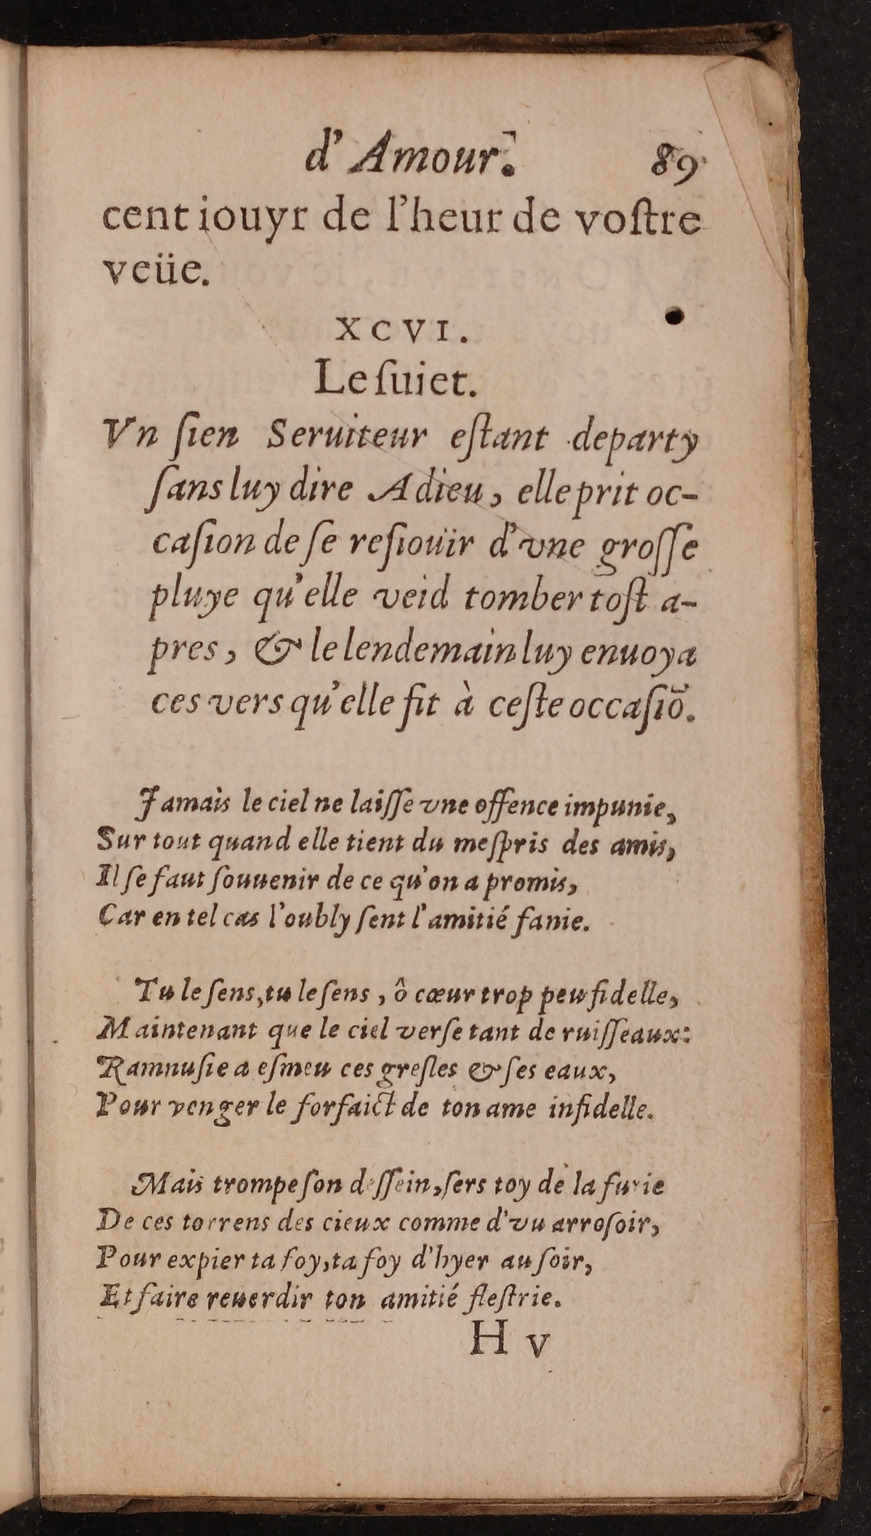 d'Amour. 89
cent iouyr de l'heur de voſtre
veüe.
XCVI.
Le ſuiet.
Vn ſien Seruiteur eſtant departy
ſans luy dire Adieu, elle prit oc-
caſion de ſe reſiouïr d'vne groſſe
pluye qu'elle veid tomber toſt a-
pres, & le lendemain luy enuoya
ces vers qu'elle fit à ceſte occaſiō.
Jamais le ciel ne laiſſe vne offence impunie,
Sur tout quand elle tient du meſpris des amis,
Il ſe faut ſouuenir de ce qu'on a promis,
Car en tel cas l'oubly ſent l'amitié fanie.
Tu le ſens, tu le ſens, ô cœur trop peu fidelle,
Maintenant que le ciel verſe tant de ruiſſeaux:
Ramnuſie a eſmeu ces greſles & ſes eaux,
Pour venger le forfaict de ton ame infidelle.
Mais trompe ſon deſſein, ſers toy de la furie
De ces torrens des cieux comme d'vu arroſoir,
Pour expier ta foy, ta foy d'hyer au ſoir,
Et faire reuerdir ton amitié fleſtrie.
H v